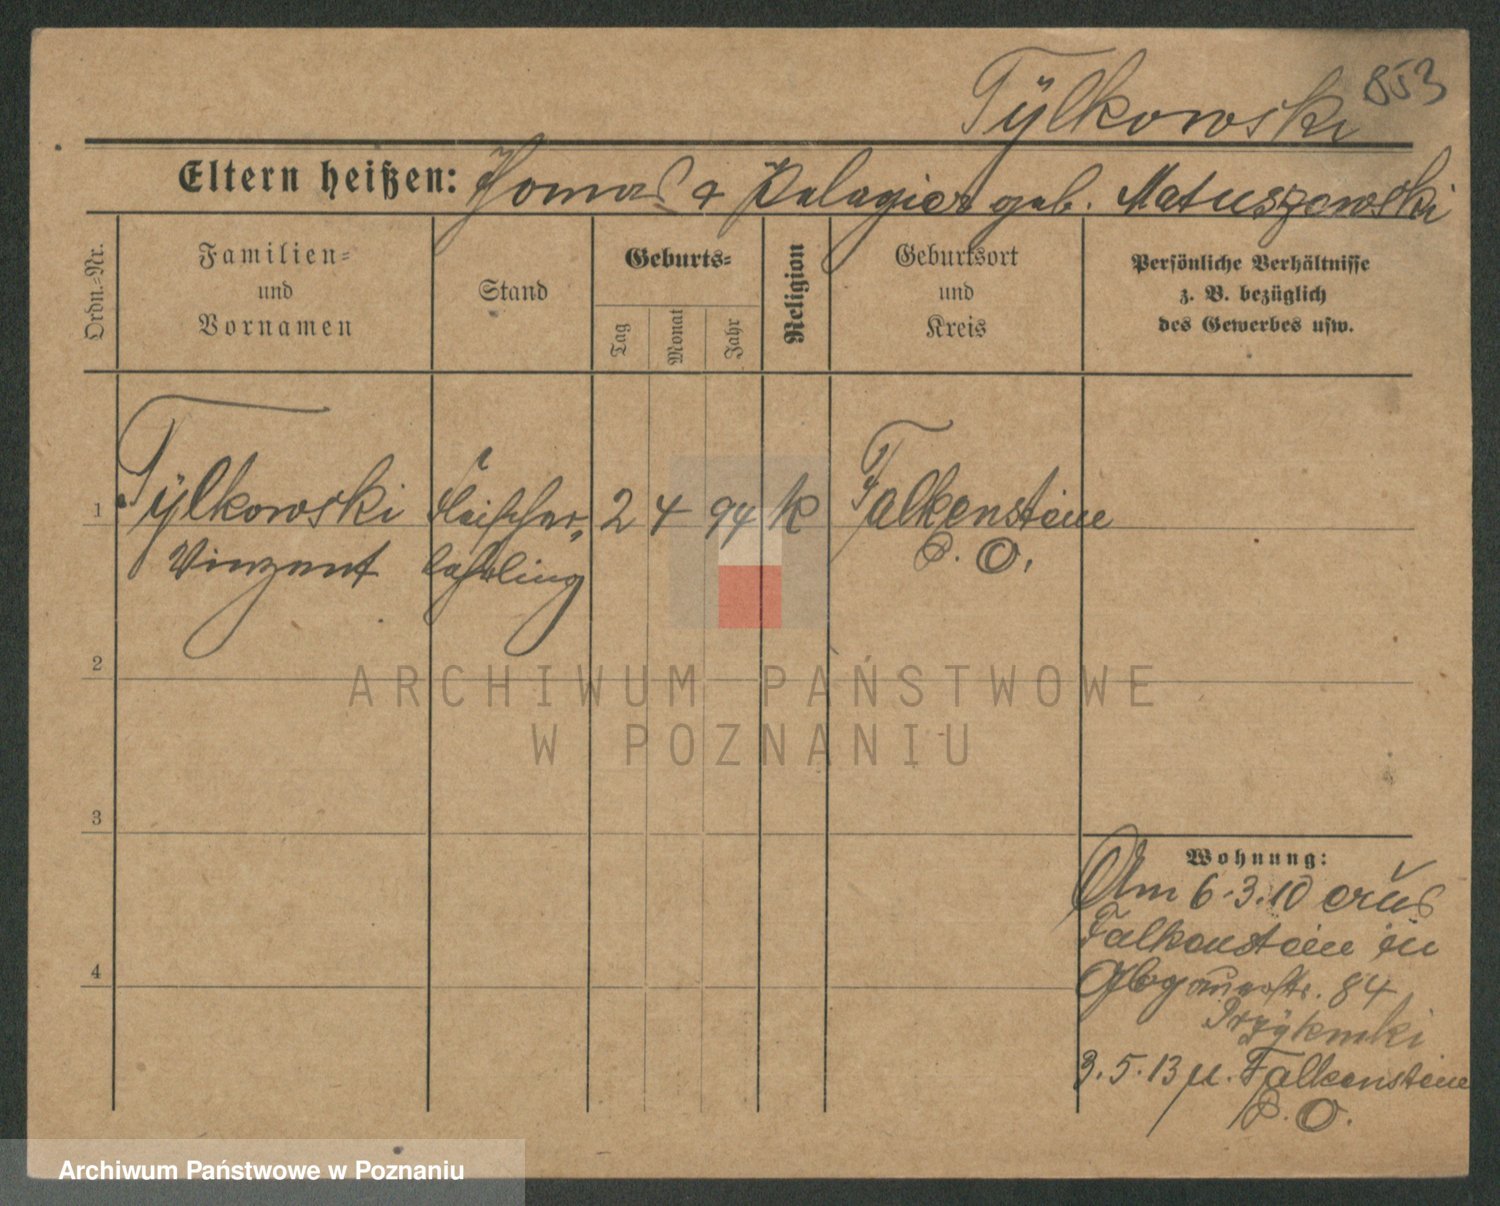 Tylkowski 853
Eltern heißen: Thomas & Pelagia geb. Matuszewski
Ordn.-Nr.
Familien=
und
Vornamen
Stand
Geburts=
Tag
Monat
Jahr
Religion
Geburtsort
und
Kreis
Persönliche Verhältnisse
z. B. bezüglich
des Gewerbes usw.
1 Tylkowski Fleischer= 2 4 94 k Falkenstein
Vinzent lehrling P. O.
2
ARCHIWUM PAŃSTWOWE
W POZNANIU
3
Wohnung:
Am 6.3.10 aus
Falkenstein in
4
Glogauerstr. 84
3.5.13 n. Falkenstein
P. O.
Archiwum Państwowe w Poznaniu